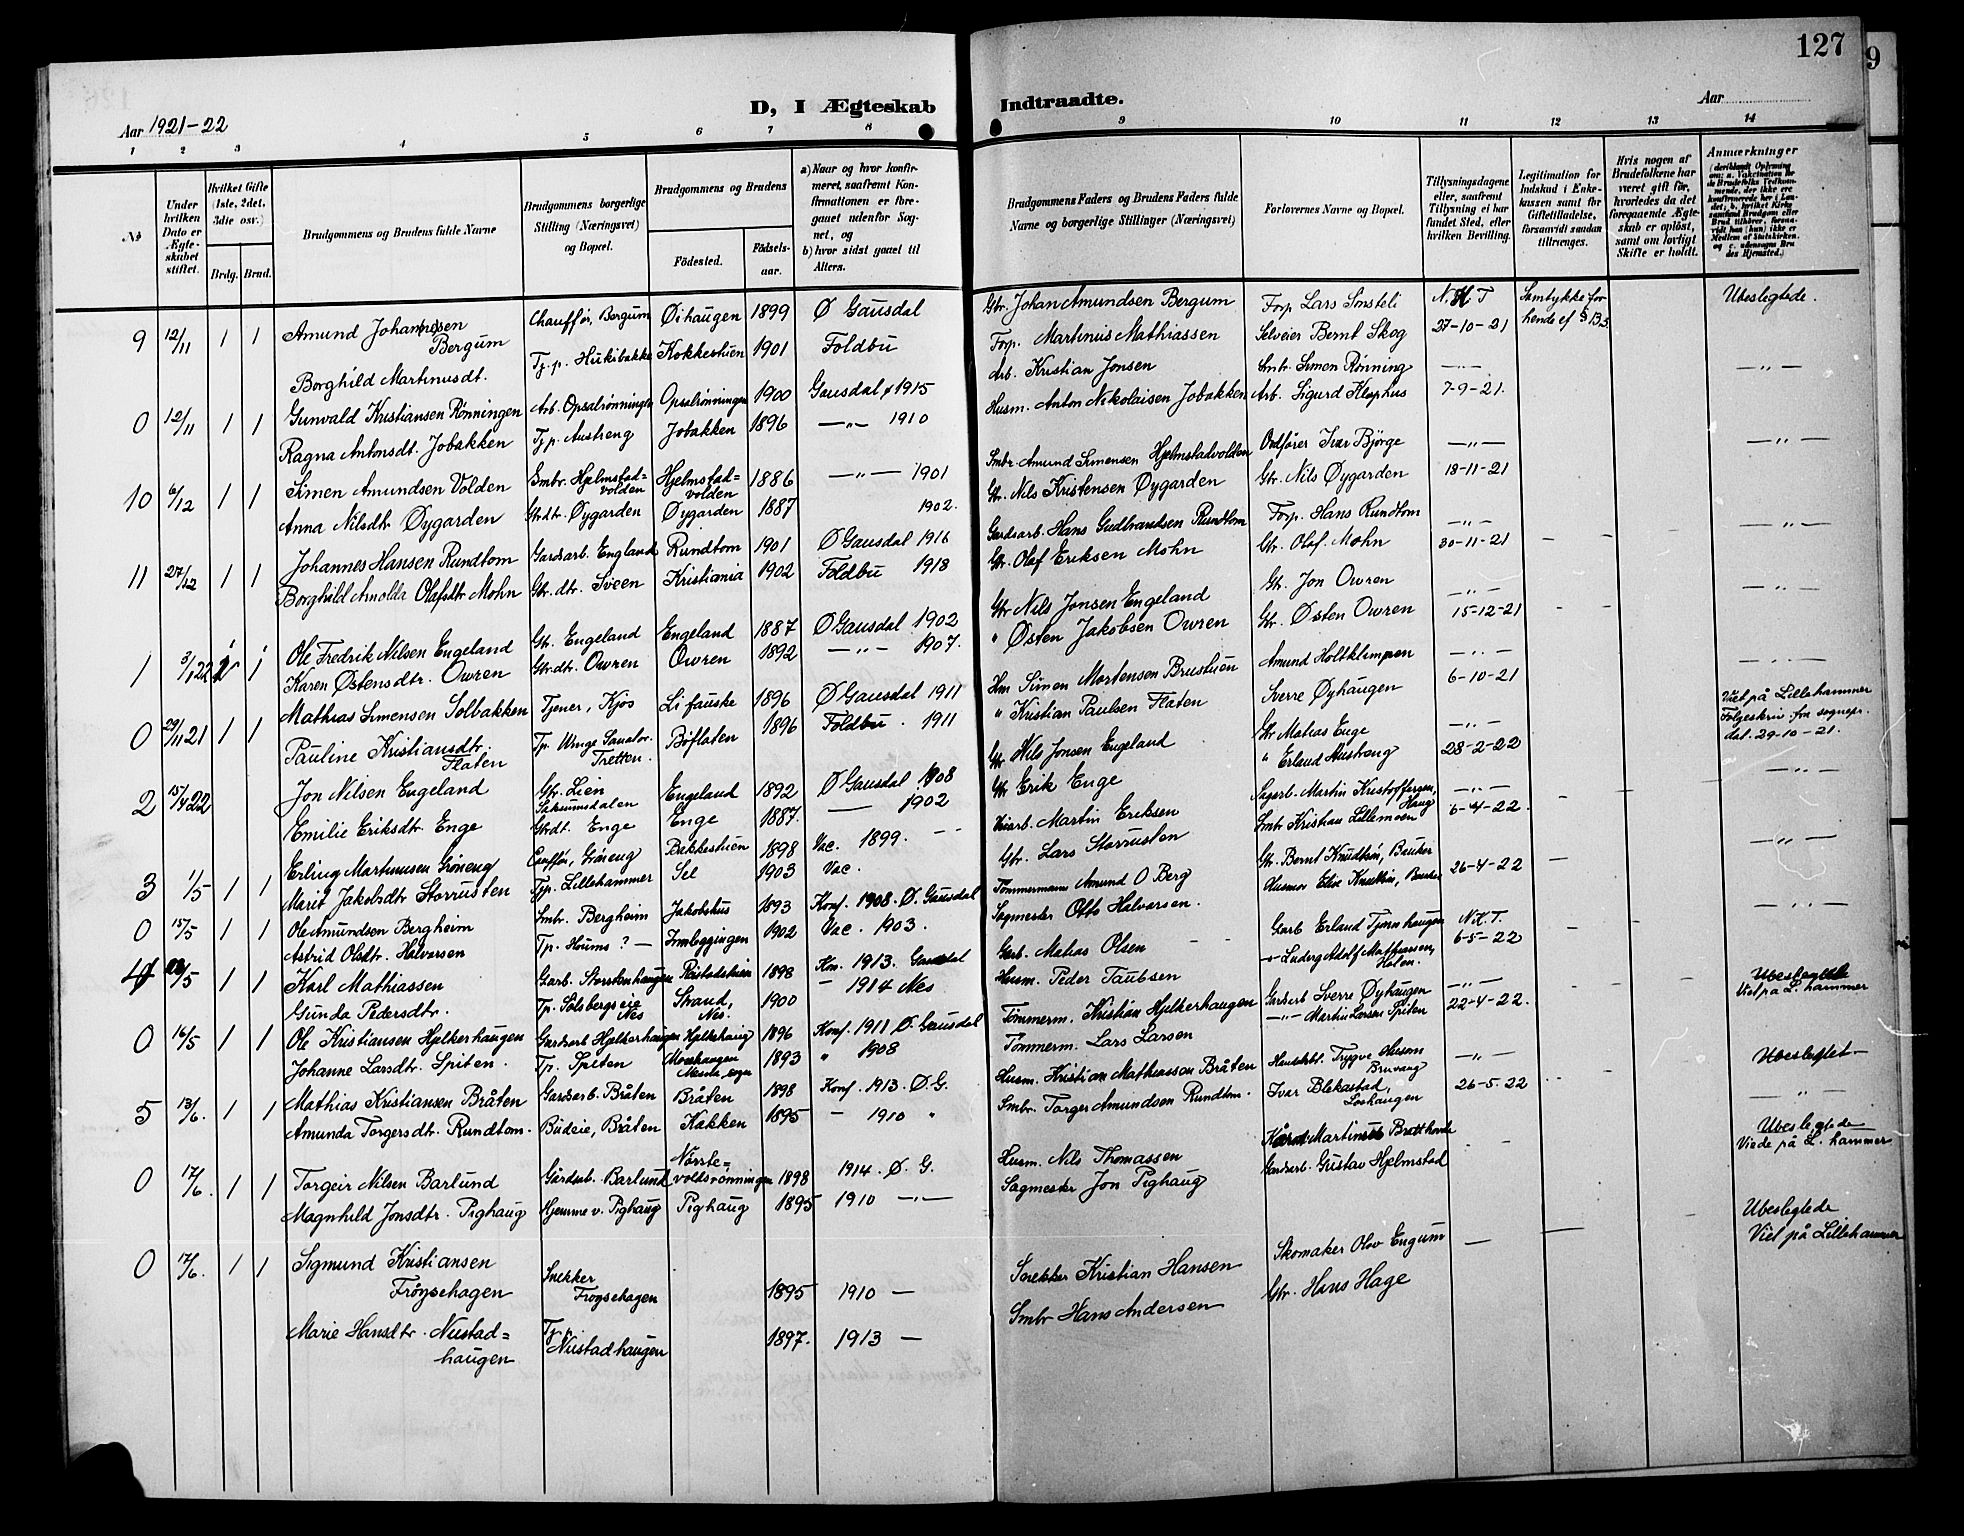 127
9
D, I Ægteskab Indtraadte.
Aar 1921-22
Aar
1 2 3 4 5 6 7 8 9 10 11 12 13 14
№
Under hvilken Dato er Ægteskabet stiftet.
Hvilket Gifte (1ste, 2det, 3die osv.)
Brdg. Brud.
Brudgommens og Brudens fulde Navne
Brudgommens borgerlige Stilling (Næringsvei) og Bopæl.
Brudgommens og Brudens
Fødested.
Fødselsaar.
a) Naar og hvor konfirmeret, saafremt Konfirmationen er foregaaet udenfor Sognet, og
b) hvor sidst gaaet til Alters.
Brudgommens Faders og Brudens Faders fulde Navne og borgerlige Stillinger (Næringsvei)
Forlovernes Navne og Bopæl.
Tillysningsdagene eller, saafremt Tillysning ei har fundet Sted, efter hvilken Bevilling.
Legitimation for Indskud i Enkekassen samt for Giftetilladelse, forsaavidt saadan tiltrænges.
Hvis nogen af Brudefolkene har været gift før, hvorledes da det foregaaende Ægteskab er opløst, samt om lovligt Skifte er holdt.
Anmærkninger
9 12/11 1 1 Amund Johannesen Bergum Chauffør, Bergum Øihaugen 1899 Ø Gausdal Gbr. Johan Amundsen Bergum Forp. Lars Smsteli N. H. T Samtykke for Ubeslegtede.
Borghild Martinusdt. Tj. p. Hukibakke Kokkestuen 1901 Foldbu Forp. Martinus Mathiassen Selveier Bernt Skog 27-10-21
0 12/11 1 1 Gunvald Kristiansen Rønningen Arb. Opsalrønningen Opsalrønningen 1900 Gausdal 1915 Arb. Kristian Jonsen Smbr. Simen Rønning —„— —„—
Ragna Antonsdt. Jobakken Tj. p. Austeng Jobakken 1896 —„— 1910 Husm. Anton Nikolaisen Jobakken Arb. Sigurd Klophus 7-9-21.
10 6/12 1 1 Simen Amundsen Volden Smbr. Hjelmstad=volden Hjelmstad=volden 1886 —„— 1901 Smbr Amund Simensen Hjelmstadvolden Ordfører Ivar Bjørge —„— —„—
Anna Nilsdtr Øygarden Gbrdt. Øygarden Øygarden 1887 1902. Gbr. Nils Kristensen Øygarden Gbr. Nils Øygarden 18-11-21
11 27/12 1 1 Johannes Hansen Rundtom Gardsarb. England Rundtom 1901 Ø Gausdal 1916 Gardsarb. Hans Gudbrandsen Rundtom Forp. Hans Rundtom —„— — — „—
Borghild Arnolda Olafsdtr Mohn Gbr. dtr. Sveen Kristiania 1902 Foldbu 1918 Gbr. Olaf Eriksen Mohn Gbr. Olaf. Mohn 30-11-21
1 3/1 22 1 1 Ole Fredrik Nilsen Engeland Gbr. Engeland Engeland 1887 Ø Gausdal 1902 Gbr Nils Jonsen Engeland Gbr. Jon Owren —„— —„—
Karen Østensdtr. Owren Gbrdtr. Owren Owren 1892 —„— 1907. „ Østen Jakobsen Owren Gbr. Østen Owren 15-12-21
0 29/11 21 1 1 Mathias Simensen Solbakken Tjener, Kjos Lifauske 1896 Ø Gausdal 1911 Hm Simen Mortensen Brustuen Amund Holtklimpen —„— —„—
Pauline Kristiansdtr. Flaten Tp. Winge Sanator. Tretten. Bøflaten 1896 Foldbu. 1911 „ Kristian Paulsen Flaten Sverre Øyhaugen 6-10-21 Viet på Lillehammer Følgeskriv. fra sognepr. dat. 29-10-21.
2 15/4 22 Jon Nilsen Engeland Gbr. Lien Engeland 1892 Ø Gausdal 1908 Gbr Nils Jonsen Engeland Gbr Matias Enge —„— —„—
Emilie Eriksdtr Enge Gbrdt. Enge Enge 1887. — 1902 Gbr Erik Enge „ Erland Austrang 28-2-22
3 1/5 1 1 Erling Martinusen Grøneng Grøneng Bakkestuen 1898 Vac. 1899. Martin Eriksen Sagarb. Martin Kristoffersen, Haug —„— —„—
Marit Jakobsdtr Storrusten Tjp. Lillehammer Sel 1903 Vac. Gbr. Lars Storrusten Smbr Kristian Lillemoen 6-4-22.
0 15/5 1 1 Ole Amundsen Bergheim Smbr. Bergheim Jakobshus 1893 Konf. 1908. Ø. Gausdal Tømmermann Amund O Berg Gbr. Bernt Knudtsøn, Bauker —„—
Astrid Olsdtr. Halvorsen Tp. Houms ? — Innleggingen 1902 Vac. 1903. Sagmester Otto Halvorsen. Husmor Elise 26-4-22
4 /5 1 1 Karl Mathiassen Garb. Storstenhaugen 1898 Kon. 1913. Gausdal Garb. Matias Olsen Garb Erland Tjønnhaugen N.H.T.
Gunda Pedersdtr. Tp. Solsbergseie Nes Strand, Nes. 1900 — 1914 Nes Husm. Peder Taubsen Ludvig Adolf Mathiassen, Holen. 6-5-22
0 16/5 1 1 Ole Kristiansen Hjelkerhaugen Gardsarb Hjelkerhaugen Hjelkehaug 1896 Konf. 1911 Ø. Gausdal Tømmerm. Kristian Hjelkerhaugen Gardarb Sverre Øyhaugen —„— Ubeslegtede Viet på L. hammer
Johanne Larsdtr. Spiten. Tp. Spiten 1893 „ 1908 Tømmerm. Lars Larsen —„— Martin Larsen Spiten 22-4-22.
5 13/6. 1 1 Mathias Kristiansen Bråten Gardsarb. Bråten Bråten 1898 Konf. 1913. Ø. G. Husm. Kristian Mathiasson Bråten Trygve Bruvang —„— Ubeslegtet—
Amunda Torgersdtr. Rundtom. Budeie, Bråten Kakken 1895 — 1910 „ Smbr. Torger Amundsen Rundtom. Ivar Blekastad, Loshaugen 26-5-22 —„
0 17/6. 1 1 Torgeir Nilsen Barlund Gårdsarb. Barlund Nørste=voldsrønningen 1898 1914. Ø. G. Husm. Nils Thomassen Martinus Bratthovde Ubeslegtede Viede på L. hammer
Magnhild Jonsdtr. Pighaug Hjemme v. Pighaug Pighaug 1895 1910 —„— Sagmester Jon Pighaug Gardsarb. Gustav Hjelmstad
0 17/6. 1 1 Sigmund Kristiansen Frøysehagen Snekker Frøysehagen 1895 1910 — Snekker Kristian Hansen Skomaker Olov Engum — — Ubeslegtede Viet på Lillehammer
Marie Hansdtr. Nustad=haugen Tj. p. Nustadhaugen 1897. 1913 — Smbr Hans Andersen Gbr. Hans Hage